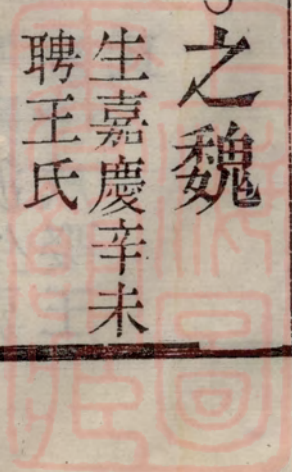 之魏
生嘉慶辛未
聘王氏